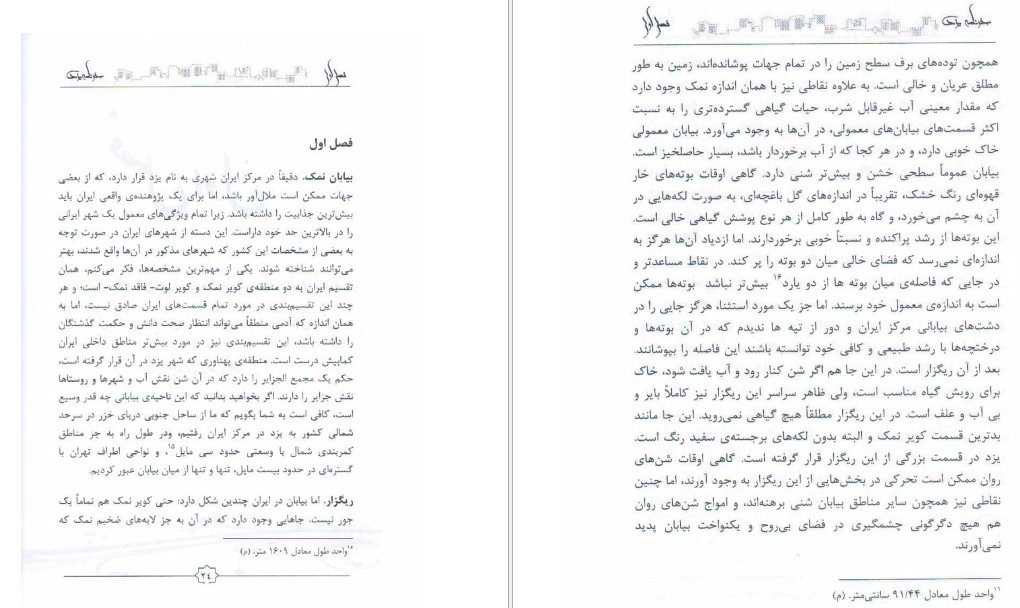 فصل اول
بیابان نمک. دقیقاً در مرکز ایران شهری به نام یزد قرار دارد، که از بعضی
جهات ممکن است ملال‌آور باشد، اما برای یک پژوهنده‌ی واقعی ایران باید
بیش‌ترین جذابیت را داشته باشد. زیرا تمام ویژگی‌های معمول یک شهر ایرانی
را در بالاترین حد خود داراست. این دسته از شهرهای ایران در صورت توجه
به بعضی از مشخصات این کشور که شهرهای مذکور در آن‌ها واقع شدند، بهتر
می‌توانند شناخته شوند. یکی از مهم‌ترین مشخصه‌ها، فکر می‌کنم، همان
تقسیم ایران به دو منطقه‌ی کویر نمک و کویر لوت- فاقد نمک- است؛ و هر
چند این تقسیم‌بندی در مورد تمام قسمت‌های ایران صادق نیست، اما به
همان اندازه که آدمی منطقاً می‌تواند انتظار صحت دانش و حکمت گذشتگان
را داشته باشد، این تقسیم‌بندی نیز در مورد بیش‌تر مناطق داخلی ایران
کمابیش درست است. منطقه‌ی پهناوری که شهر یزد در آن قرار گرفته است،
حکم یک مجمع الجزایر را دارد که در آن شن نقش آب و شهرها و روستاها
نقش جزایر را دارند. اگر بخواهید بدانید که این ناحیه‌ی بیابانی چه قدر وسیع
است، کافی است به شما بگویم که ما از ساحل جنوبی دریای خزر در سرحد
شمالی کشور به یزد در مرکز ایران رفتیم، ودر طول راه به جز مناطق
کمربندی شمال با وسعتی حدود سی مایل۱۵، و نواحی اطراف تهران با
گستره‌ای در حدود بیست مایل، تنها و تنها از میان بیابان عبور کردیم.
ریگزار. اما بیابان در ایران چندین شکل دارد: حتی کویر نمک هم تماماً یک
جور نیست. جاهایی وجود دارد که در آن به جز لایه‌های ضخیم نمک که
واحد طول معادل ۱۶۰۹ متر. (م)
۲۴
همچون توده‌های برف سطح زمین را در تمام جهات پوشانده‌اند، زمین به طور
مطلق عریان و خالی است. به علاوه نقاطی نیز با همان اندازه نمک وجود دارد
که مقدار معینی آب غیرقابل شرب، حیات گیاهی گسترده‌تری را به نسبت
اکثر قسمت‌های بیابان‌های معمولی، در آن‌ها به وجود می‌آورد. بیابان معمولی
خاک خوبی دارد، و در هر کجا که از آب برخوردار باشد، بسیار حاصلخیز است.
بیابان عموماً سطحی خشن و بیش‌تر شنی دارد. گاهی اوقات بوته‌های خار
قهوه‌ای رنگ خشک، تقریباً در اندازه‌های گل باغچه‌ای، به صورت لکه‌هایی در
آن به چشم می‌خورد، و گاه به طور کامل از هر نوع پوشش گیاهی خالی است.
این بوته‌ها از رشد پراکنده و نسبتاً خوبی برخوردارند. اما ازدیاد آن‌ها هرگز به
اندازه‌ای نمی‌رسد که فضای خالی میان دو بوته را پر کند. در نقاط مساعدتر و
در جایی که فاصله‌ی میان بوته ها از دو یارد۱۶ بیش‌تر نباشد بوته‌ها ممکن
است به اندازه‌ی معمول خود برسند. اما جز یک مورد استثنا، هرگز جایی را در
دشت‌های بیابانی مرکز ایران و دور از تپه ها ندیدم که در آن بوته‌ها و
درختچه‌ها با رشد طبیعی و کافی خود توانسته باشند این فاصله را بپوشانند.
بعد از آن ریگزار است. در این جا هم اگر شن کنار رود و آب یافت شود، خاک
برای رویش گیاه مناسب است، ولی ظاهر سراسر این ریگزار نیز کاملاً بایر و
بی آب و علف است. در این ریگزار مطلقاً هیچ گیاهی نمی‌روید. این جا مانند
بدترین قسمت کویر نمک و البته بدون لکه‌های برجسته‌ی سفید رنگ است.
یزد در قسمت بزرگی از این ریگزار قرار گرفته است. گاهی اوقات شن‌های
روان ممکن است تحرکی در بخش‌هایی از این ریگزار به وجود آورند، اما چنین
نقاطی نیز همچون سایر مناطق بیابان شنی برهنه‌اند، و امواج شن‌های روان
هم هیچ دگرگونی چشمگیری در فضای بی‌روح و یکنواخت بیابان پدید
نمی‌آورند.
واحد طول معادل ۹۱/۴۴ سانتی‌متر. (م)